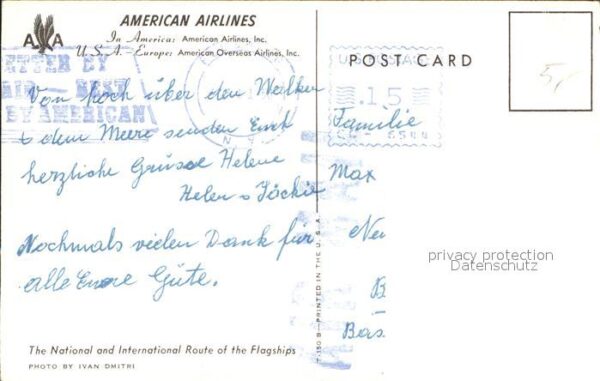 AMERICAN AIRLINES
A A
In America: American Airlines, Inc.
U.S.A. - Europe: American Overseas Airlines, Inc.
BY
AIR BEST
BY AMERICAN
Von hoch über den Wolken
& dem Meere senden Euch
herzliche Grüsse Helene
Helen & Jöckie
Nochmals vielen Dank für
alle Eure Güte.
The National and International Route of the Flagships
PHOTO BY IVAN DMITRI
T-150 B—PRINTED IN THE U.S.A.
POST CARD
U.S. POSTAGE
.15
5,-
Familie
Max
Neu
B
Bas
privacy protection
Datenschutz